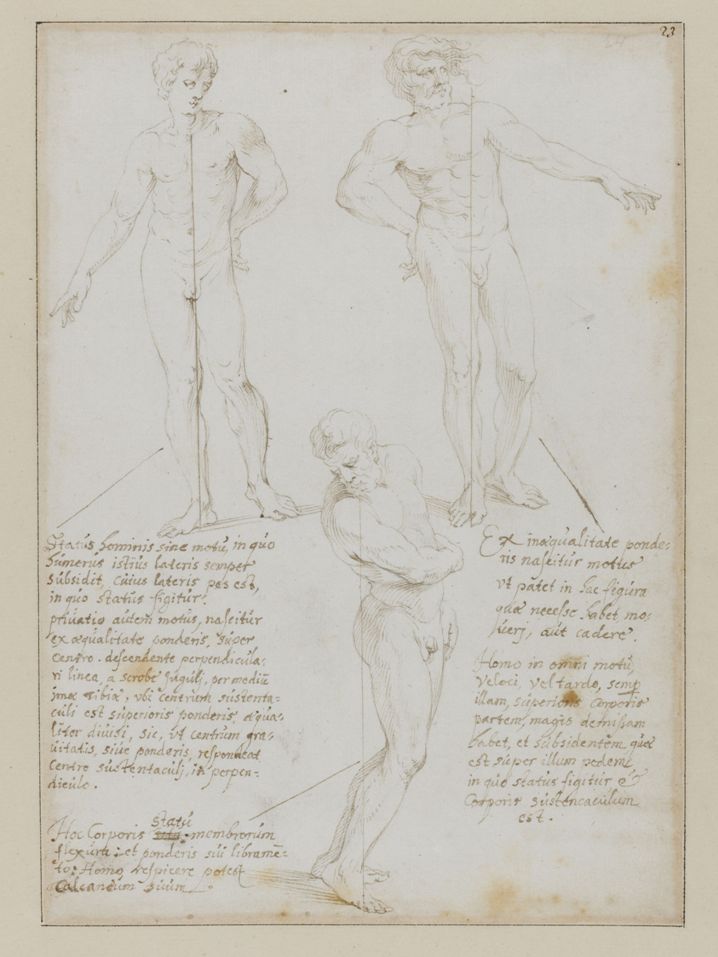 23
24
Status hominis sine motu, in quo
humerus istius lateris semper
subsidit, cuius lateris pes est,
in quo status figitur.
privatio autem motus, nascitur
ex æqualitate ponderis, super
centro. descendente perpendicula-
ri linea, a scrobe Juguli, per mediũ
imæ tibiæ, vbi centrum sustenta-
culi est superioris ponderis, æqua-
liter divisi, sic, vt centrum gra-
vitatis, sive ponderis, respondeat
centro sustentaculj, in perpen-
diculo.
Ex inæqualitate ponde-
ris nascitur motus
vt patet in hac figura
quæ necesse habet mo-
verj, aut cadere.
Homo in omni motu,
veloci, vel tardo, semp
illam, superioris corporis
partem, magis demissam
habet, et subsidentem, quæ
est super illum pedem,
in quo status figitur &
Corporis sustentaculum
est.
statu
Hoc Corporis membrorum
flexura; et ponderis sui libramē-
to; Homo respicere potest
Calcaneum suum